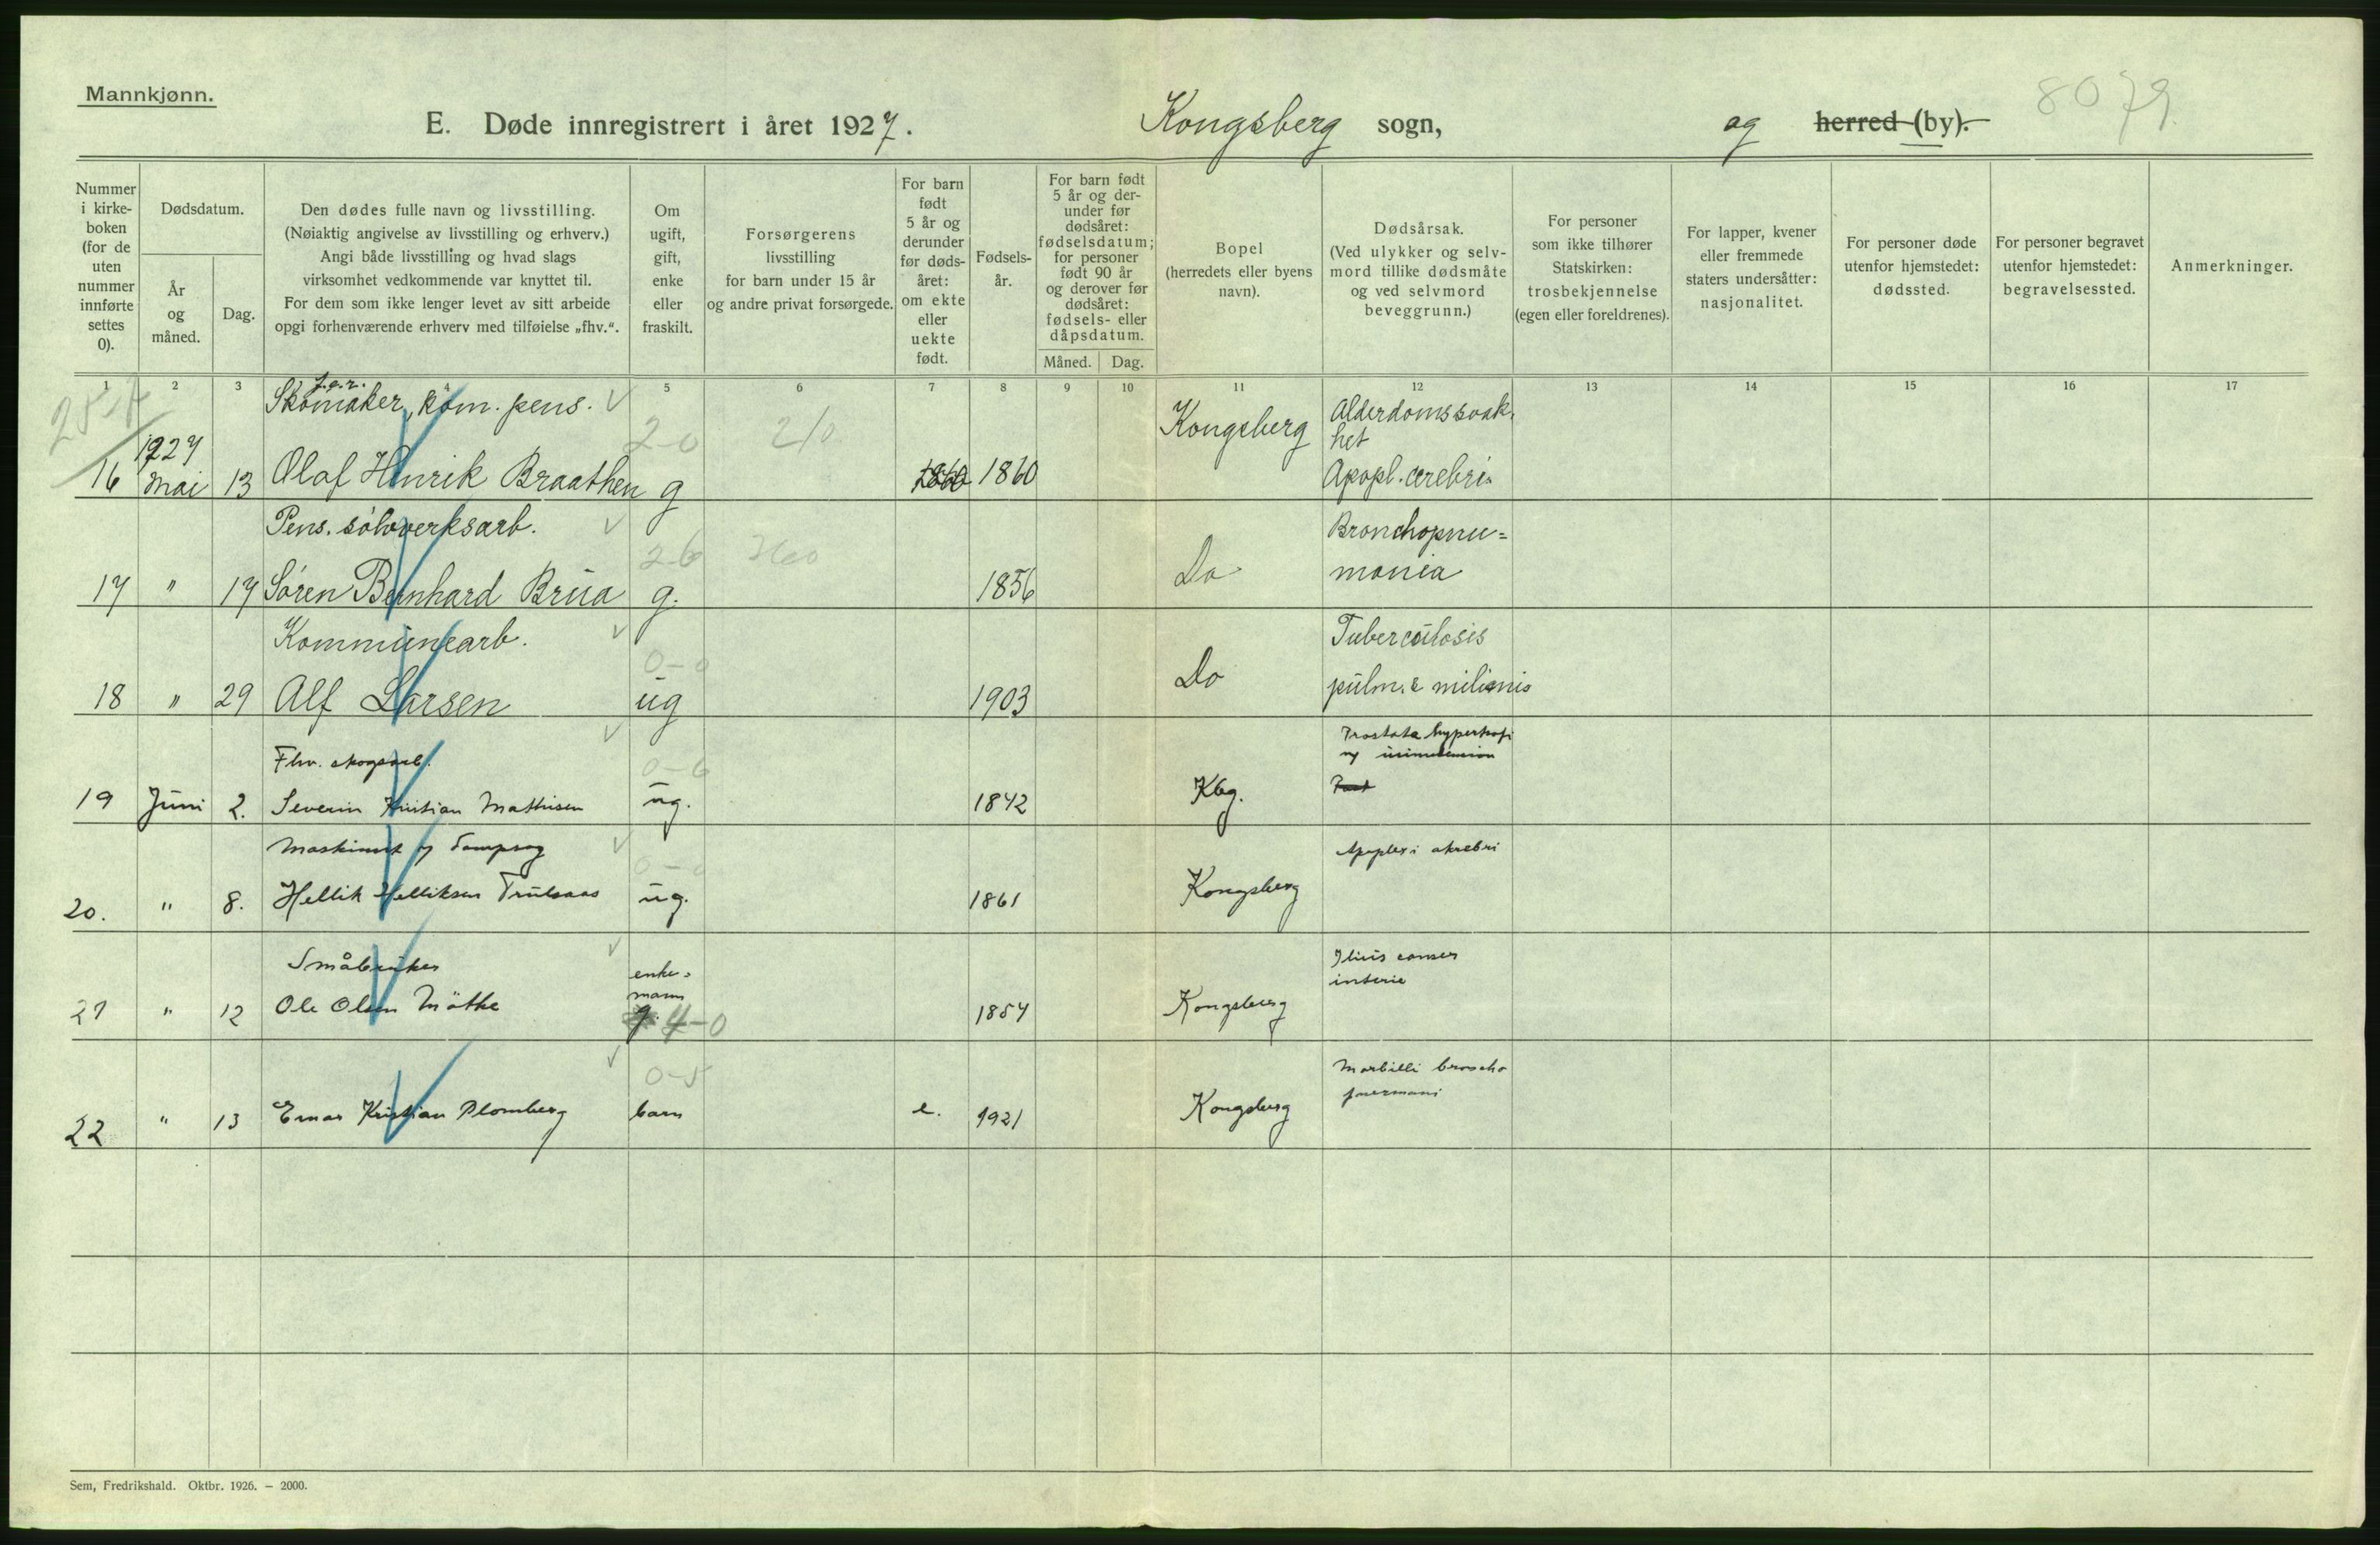 Mannkjønn.
E. Døde innregistrert i året 1927. Kongsberg sogn, og herred (by).
8079
Nummer i kirke- boken (for de uten nummer innførte settes 0).
Dødsdatum.
År og måned.
Dag.
Den dødes fulle navn og livsstilling.
(Nøiaktig angivelse av livsstilling og erhverv.)
Angi både livsstilling og hvad slags
virksomhet vedkommende var knyttet til.
For dem som ikke lenger levet av sitt arbeide
opgi forhenværende erhverv med tilføielse „fhv.“.
Om ugift, gift, enke eller fraskilt.
Forsørgerens
livsstilling
for barn under 15 år
og andre privat forsørgede.
For barn født 5 år og derunder før døds- året: om ekte eller uekte født.
Fødsels- år.
For barn født 5 år og der- under før dødsåret: fødselsdatum; for personer født 90 år og derover før dødsåret: fødsels- eller dåpsdatum.
Måned. Dag.
Bopel
(herredets eller byens
navn).
Dødsårsak.
(Ved ulykker og selv-
mord tillike dødsmåte
og ved selvmord
beveggrunn.)
For personer
som ikke tilhører
Statskirken:
trosbekjennelse
(egen eller foreldrenes).
For lapper, kvener
eller fremmede
staters undersåtter:
nasjonalitet.
For personer døde
utenfor hjemstedet:
dødssted.
For personer begravet
utenfor hjemstedet:
begravelsessted.
Anmerkninger.
1 2 3 4 5 6 7 8 9 10 11 12 13 14 15 16 17
Skomaker, kom. pens. Kongsberg Alderdomssvak-
het
1927 2-0 210
16 Mai 13 Olaf Henrik Braathen g 1860 1860 Apopl. cerebri
Pens. sølvverksarb. Bronchopneu=
2-6
17 " 17 Søren Bernhard Brua g. 1856 Do monia
Kommunearb. Tuberculosis
0-0
18 " 29 Alf Larsen ug 1903 Do pulm. & miliaris
Fhv. skogsarb. Prostata
0-6
19 Juni 2. Severin Kristian Mathisen ug. 1842 Kbg.
Maskinist Apoplexi
0-0
20. " 8. Hellik Helliksen Trulsaas ug. 1861 Kongsberg
Småbruker enke-
mann
21 " 12 Ole Olsen g. 4-0 1854 Kongsberg
Morbilli broncho
0-5
22 " 13 Kristian Blomberg barn e. 1921 Kongsberg
Sem, Fredrikshald. Oktbr. 1926. – 2000.